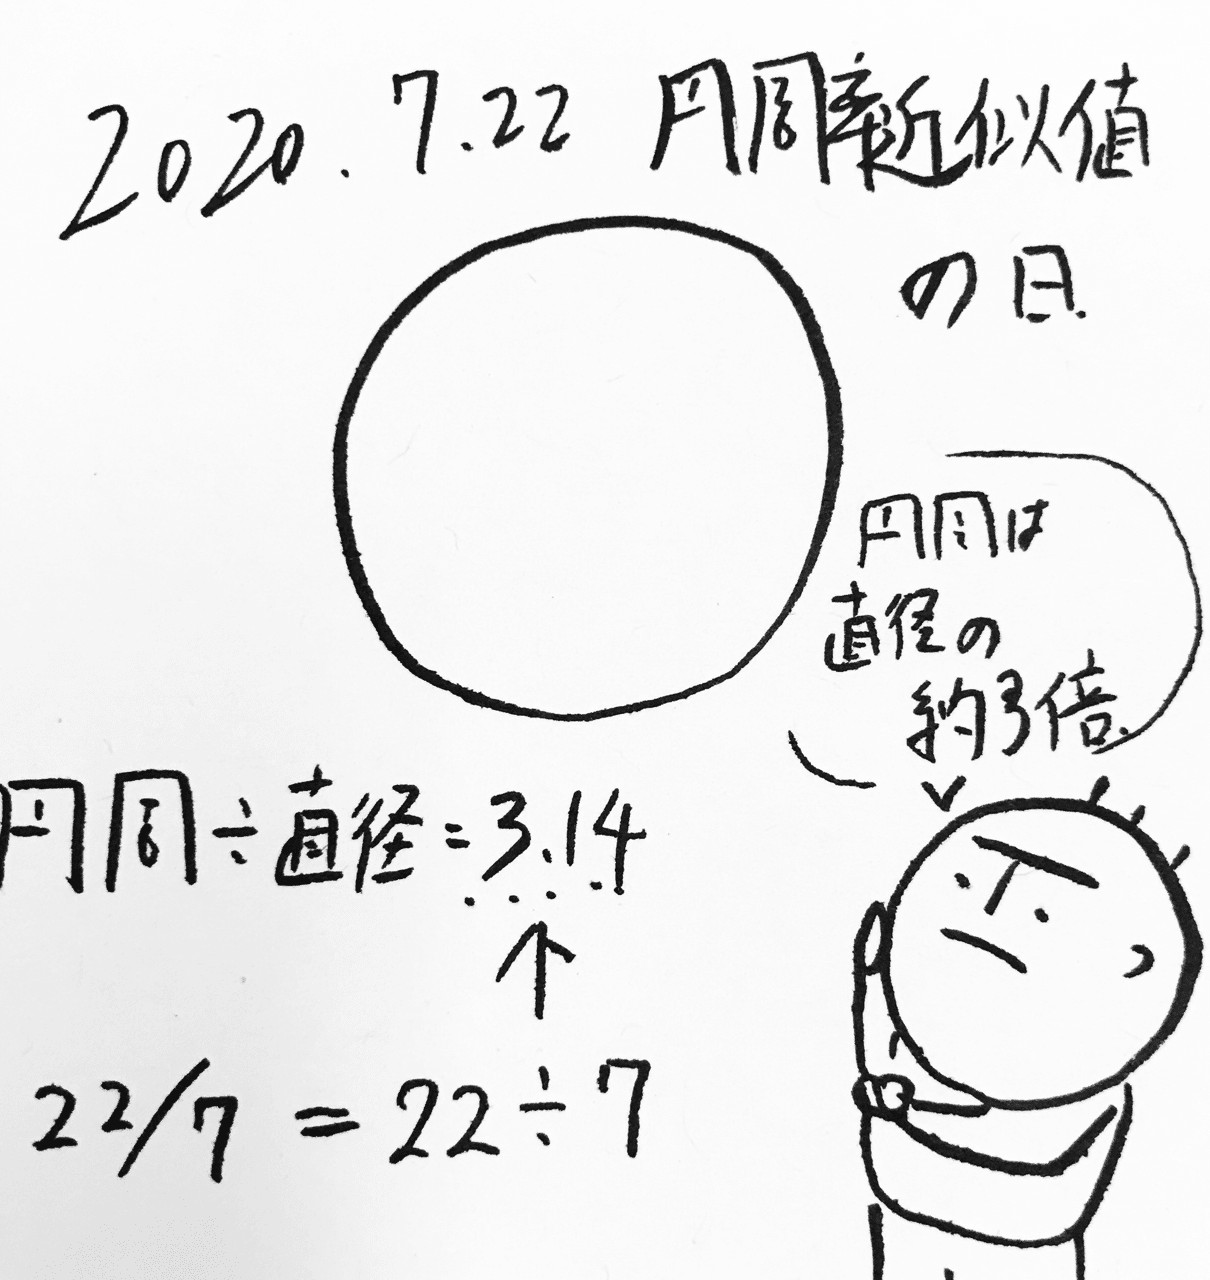 2020.7.22 円周率近似値
の日.
円周は
直径の
約3倍.
円周÷直径=3.14
....
22/7=22÷7